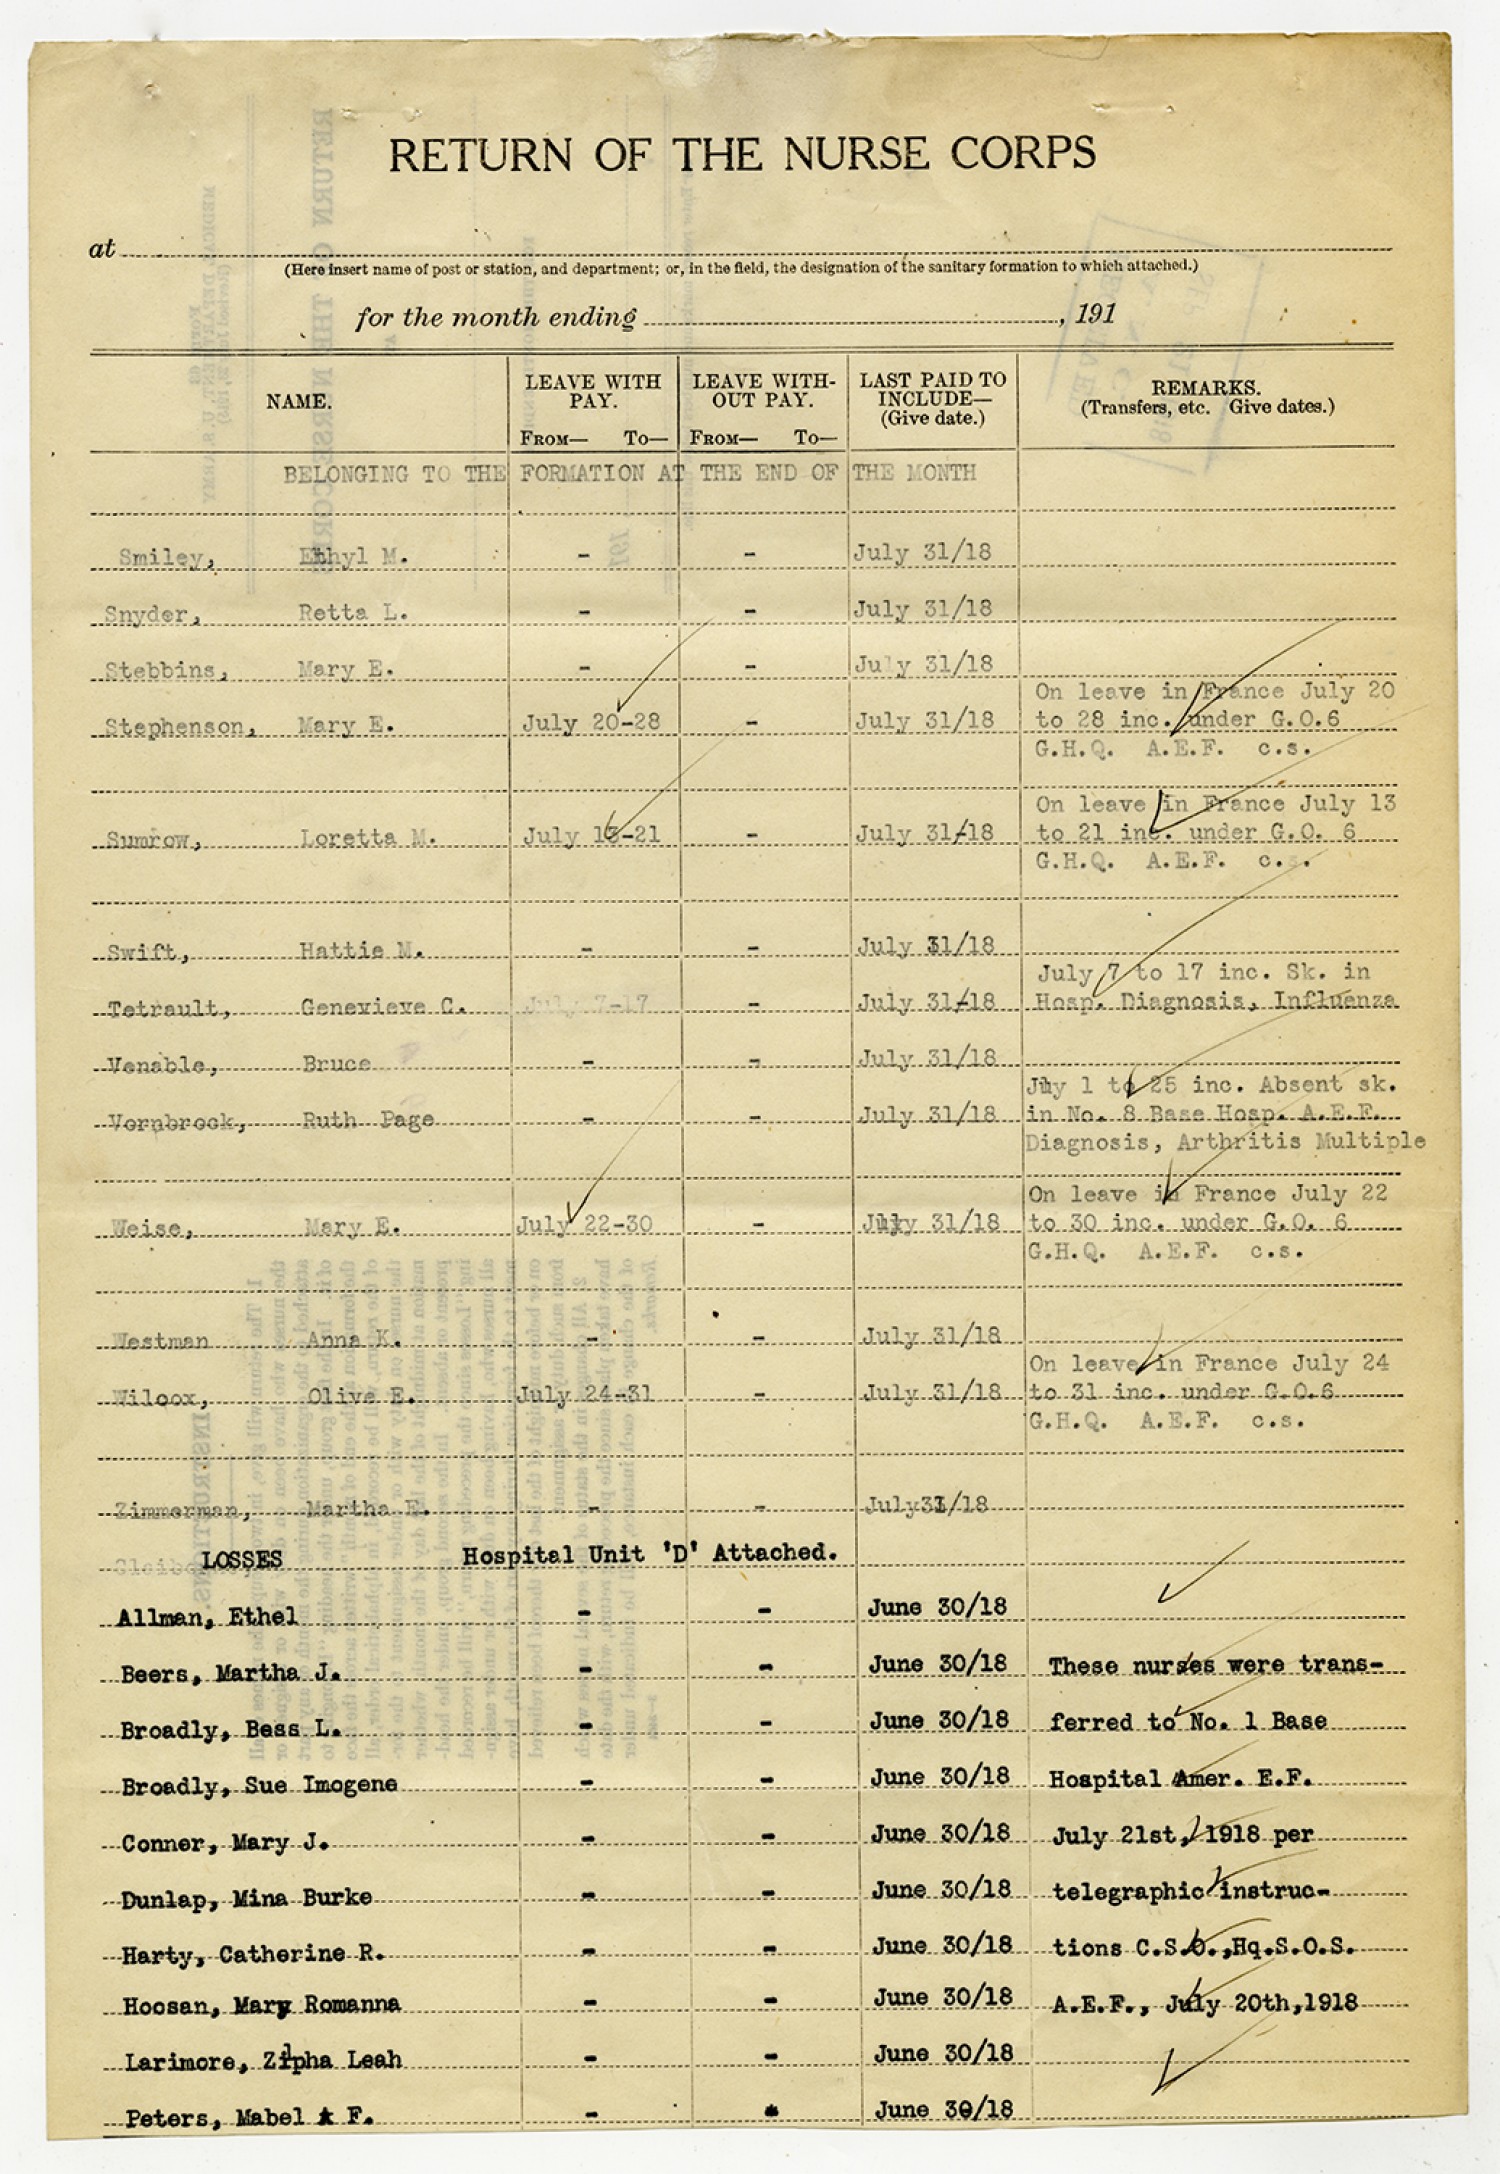 RETURN OF THE NURSE CORPS
at
(Here insert name of post or station, and department; or, in the field, the designation of the sanitary formation to which attached.)
for the month ending , 191
NAME. LEAVE WITH PAY. From— To— LEAVE WITH-OUT PAY. From— To— LAST PAID TO INCLUDE— (Give date.) REMARKS. (Transfers, etc. Give dates.)
BELONGING TO THE FORMATION AT THE END OF THE MONTH
Smiley, Ethyl M. - - July 31/18
Snyder, Retta L. - - July 31/18
Stebbins, Mary E. - - July 31/18
On leave in France July 20
Stephenson, Mary E. July 20-28 - July 31/18 to 28 inc. under G.O.6
G.H.Q. A.E.F. c.s.
On leave in France July 13
Sumrow, Loretta M. July 13-21 - July 31/18 to 21 inc. under G.O. 6
G.H.Q. A.E.F. c.s.
Swift, Hattie M. - - July 31/18
July 7 to 17 inc. Sk. in
Tetrault, Genevieve C. July 7-17 - July 31/18 Hosp. Diagnosis, Influenza
Venable, Bruce - - July 31/18
July 1 to 25 inc. Absent sk.
Vornbrock, Ruth Page - - July 31/18 in No. 8 Base Hosp. A.E.F.
Diagnosis, Arthritis Multiple
On leave in France July 22
Weise, Mary E. July 22-30 - July 31/18 to 30 inc. under G.O. 6
G.H.Q. A.E.F. c.s.
Westman Anna K. - - July 31/18
On leave in France July 24
Wilcox, Olive E. July 24-31 - July 31/18 to 31 inc. under G.O.6
G.H.Q. A.E.F. c.s.
Zimmerman, Martha E. - - July31/18
LOSSES Hospital Unit 'D' Attached.
Allman, Ethel - - June 30/18
Beers, Martha J. - - June 30/18 These nurses were trans-
Broadly, Bess L. - - June 30/18 ferred to No. 1 Base
Broadly, Sue Imogene - - June 30/18 Hospital Amer. E.F.
Conner, Mary J. - - June 30/18 July 21st, 1918 per
Dunlap, Mina Burke - - June 30/18 telegraphic instruc-
Harty, Catherine R. - - June 30/18 tions C.S.O.,Hq.S.O.S.
Hoosan, Mary Romanna - - June 30/18 A.E.F., July 20th,1918
Larimore, Zilpha Leah - - June 30/18
Peters, Mabel F. - - June 30/18